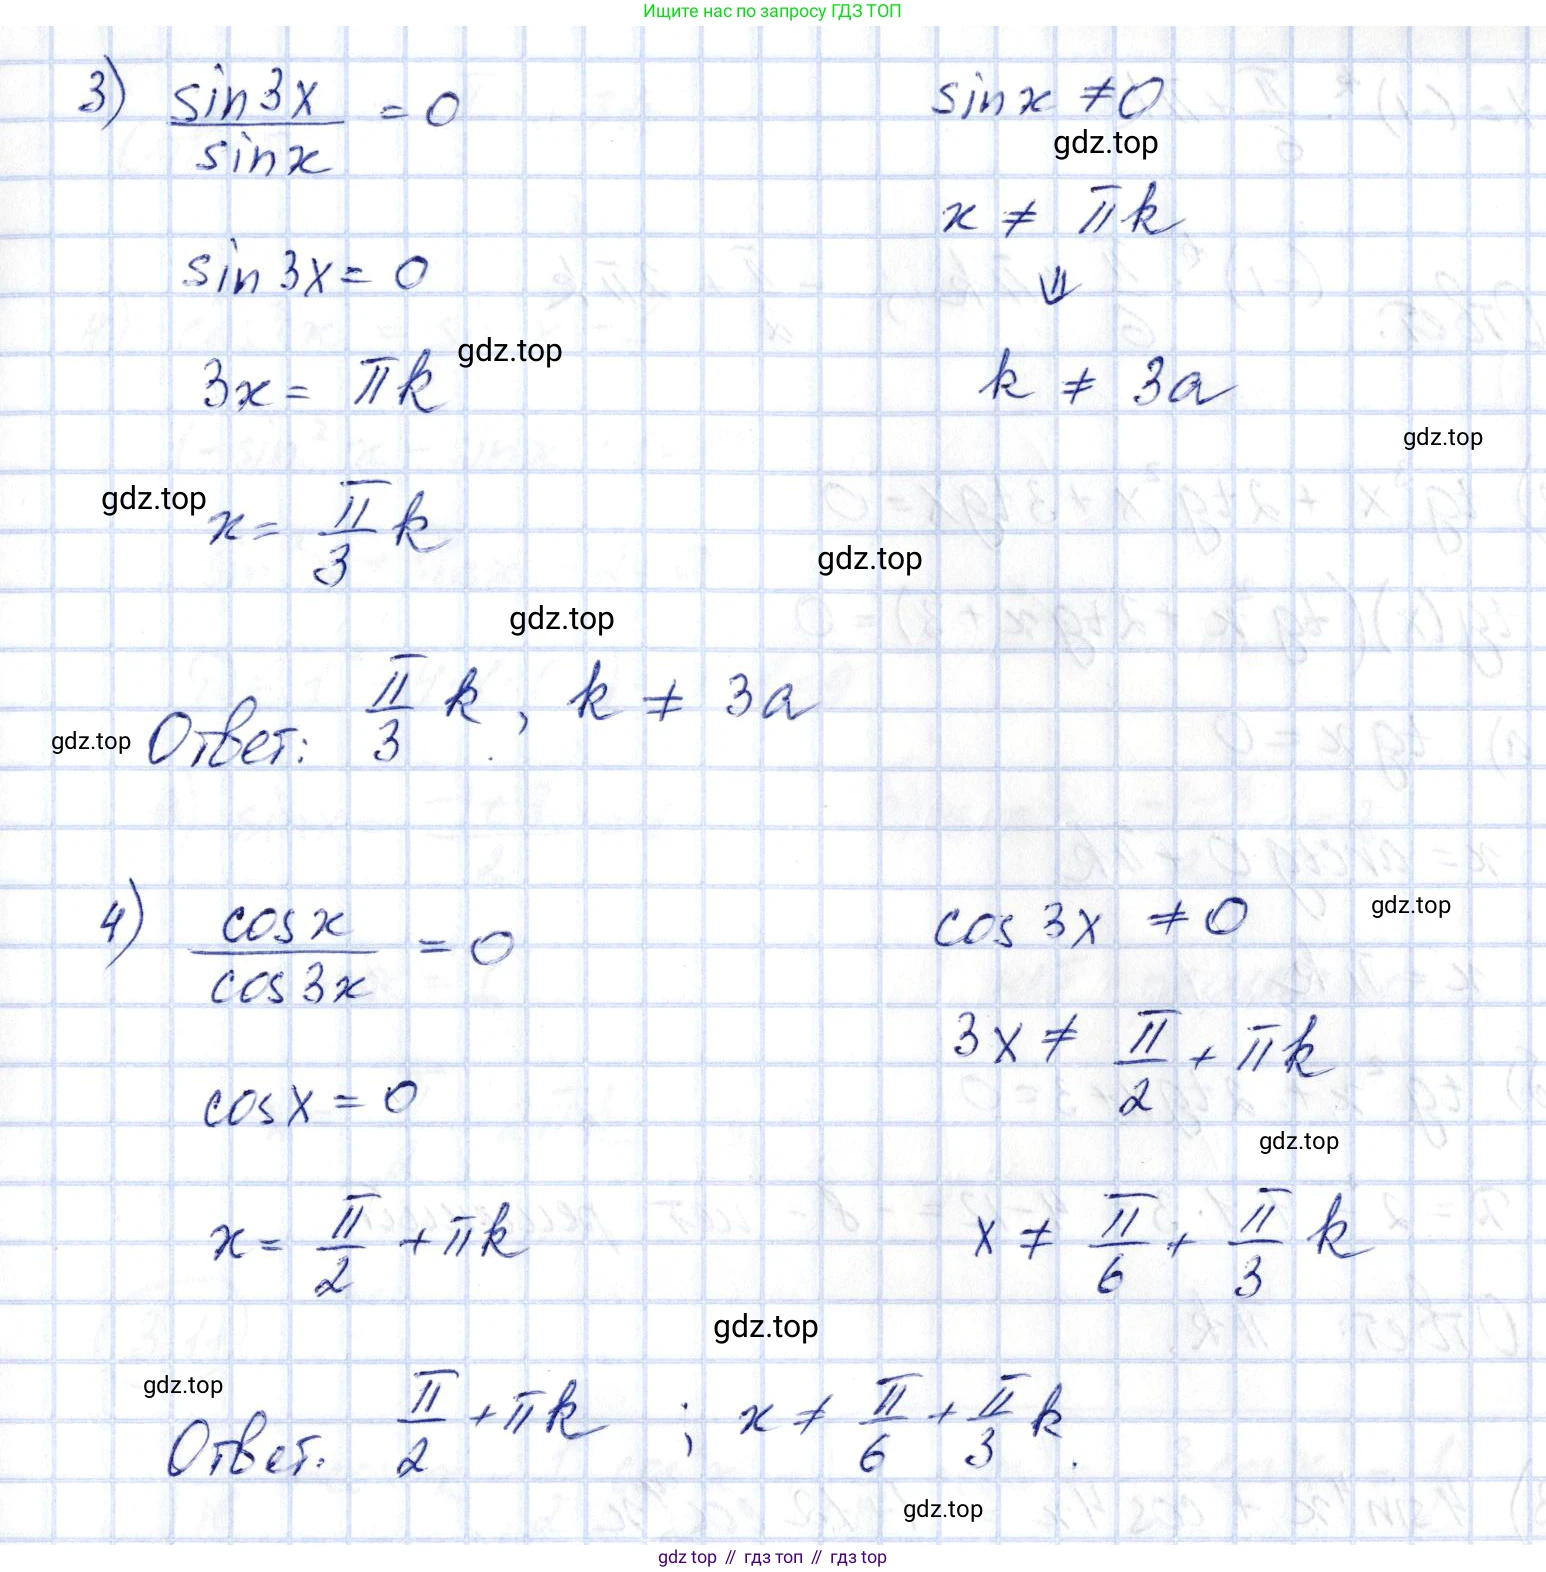 Ищите нас по запросу ГДЗ ТОП
3) sin3x / sinx = 0
sinx ≠ 0
gdz.top
x ≠ πk
sin3x = 0
⇓
gdz.top
3x = πk
k ≠ 3a
gdz.top
gdz.top
x = π/3 k
gdz.top
gdz.top
Ответ: π/3 k, k ≠ 3a
gdz.top
4) cosx / cos3x = 0
cos3x ≠ 0
gdz.top
3x ≠ π/2 + πk
cosx = 0
gdz.top
x = π/2 + πk
x ≠ π/6 + π/3 k
gdz.top
gdz.top
Ответ: π/2 + πk ; x ≠ π/6 + π/3 k.
gdz.top
gdz top // гдз топ // gdz top